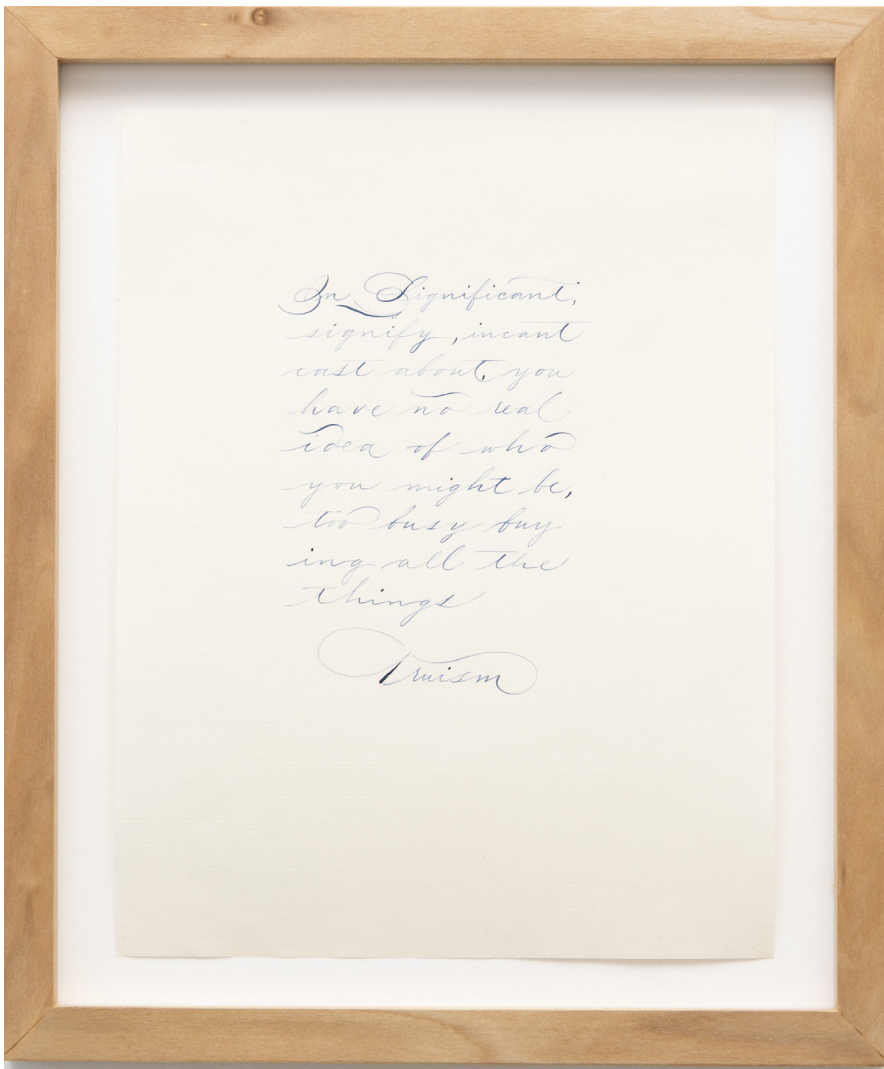 In Significant,
signify, incant
cast about, you
have no real
idea of who
you might be,
too busy buy
ing all the
things
Truism